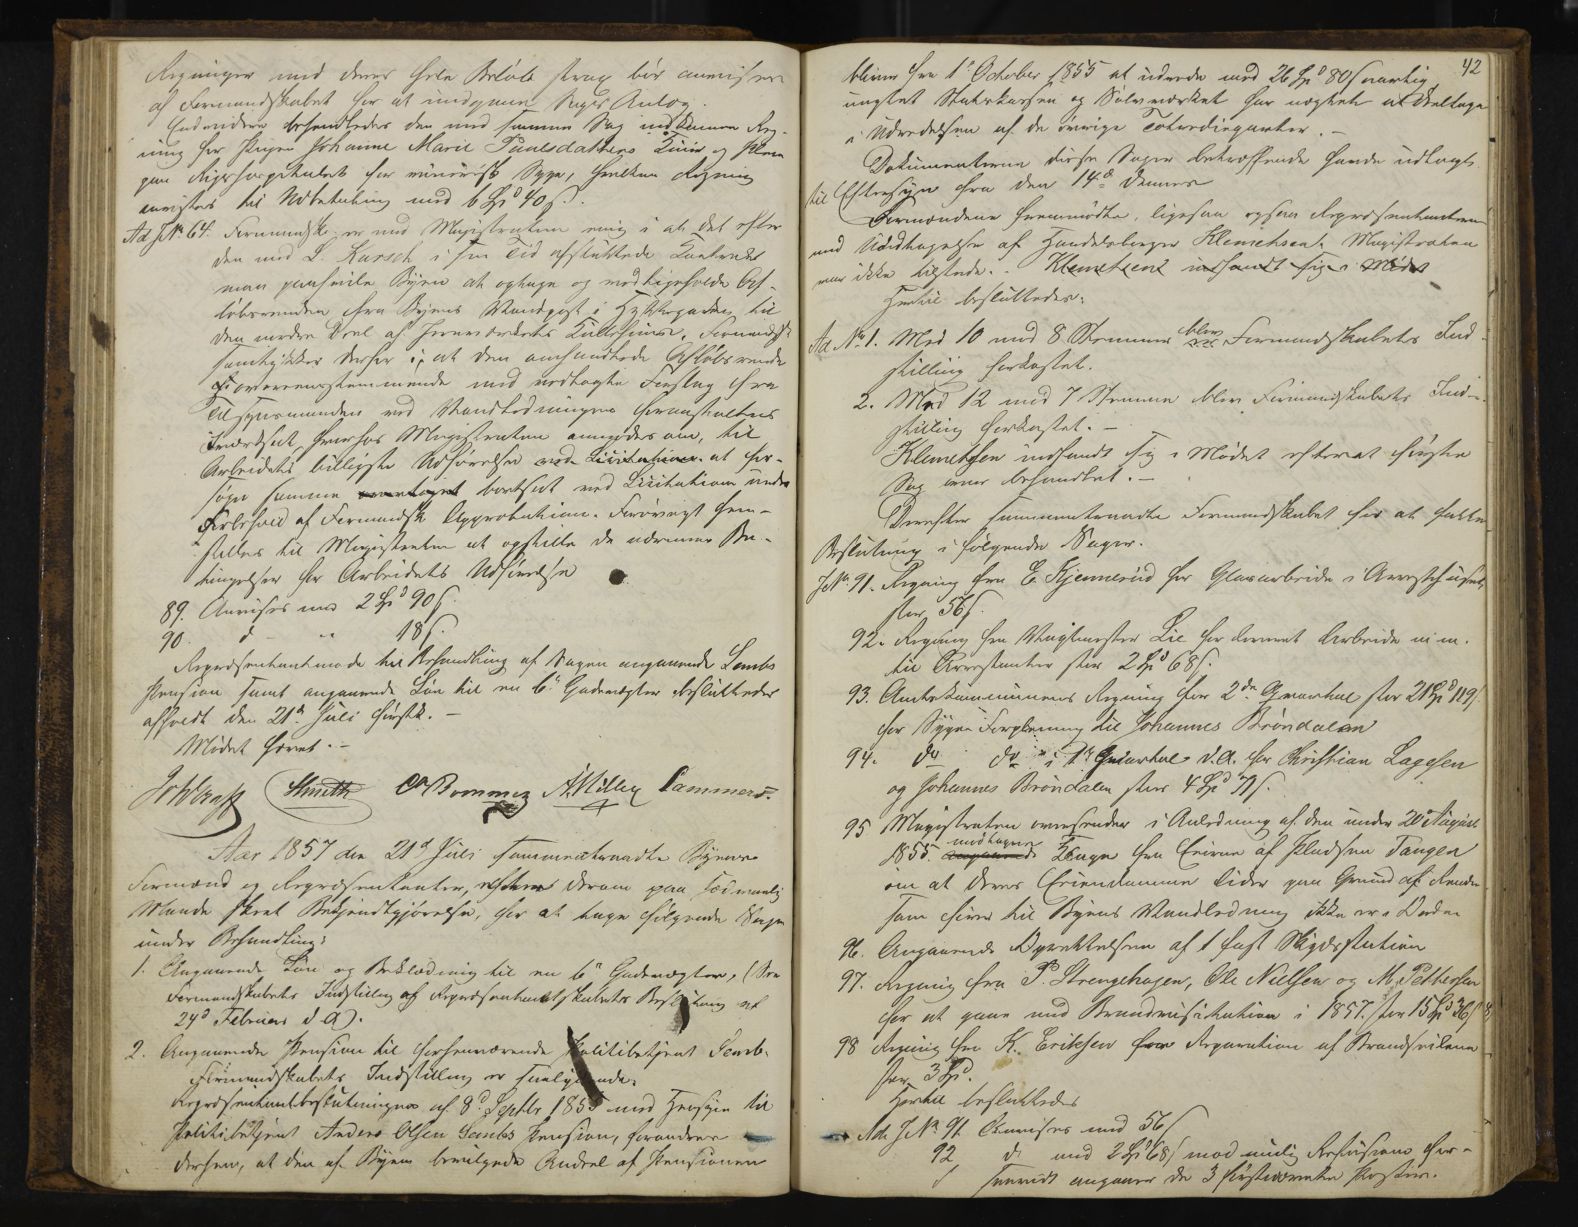 Regninger med deres hele Beløb strax bør anvises
af Formandskabet for at undgaae Sags Anlæg.
Endvidere behandledes den med samme Sag indkomne Reg-
ning for Pigen Johanne Marie Paulsdatters Kuur og Pleie
paa Rigshospitalet for venerisk Syge, hvilken Regning
anvistes til Udbetaling med 6 Spd 40 s.
Ad J.No 64. Formandsk. er med Magistraten enig i at det efter
den med L. Karsch i sin Tid afsluttede Contract
maa paahvile Byen at optage og vedligeholde Af-
løbsrenden fra Byens Vandpost i Hyttegaden til
den nedre Deel af Jernværkets Kulhuus. Formandsk.
samtykker derfor i, at den omhandlede Afløbsrende
i overeensstemmende med vedlagte Forslag fra
Tilsynsmanden ved Vandledningen foranstaltes
iværksat, hvorhos Magistraten anmodes om, til
Arbeidets billigste Udførelse ved Licitation at for-
søge samme bortsat ved Licitation under
Forbehold af Formandsk. Approbation. Forøvrigt hen-
stilles til Magistraten at opstille de nærmere Be-
tingelser for Arbeidets Udførelse
89. Anvises med 2 Spd 90 s.
90. d " 18 s.
Repræsentantmøde til Behandling af Sagen angaaende Sembs
Pension samt angaaende Løn til en 6te Gadevægter besluttedes
afholdt den 21de Juli førstk. -
Mødet hævet. -
Smith CABommen A.Miller Lammers.
Aar 1857 den 21d Juli sammentraadte Byens
Formænd og Repræsentanter, efter derom paa sædvanlig
Maade skeet Bekjendtgjørelse, for at tage følgende Sager
under Behandling:
1. Angaaende Løn og Beklædning til en 6te Gadevægter, (See
Formandskabets Indstilling og Repræsentantskabets Beslutning af
24d Februar d. A).
2. Angaaende Pension til forhenværende Politibetjent Semb.
Formandskabets Indstilling er saalydende:
Repræsentantbeslutningen af 8d Septbr 1855 med Hensyn til
Politibetjent Anders Olsen Sembs Pension, forandres
derhen, at den af Byen bevilgede Andeel af Pensionen
42
bliver fra 1s October 1855 at udrede med 26 Spd 80 s aarlig
uagtet Statskassen og Sølvværket har nægtet at deeltage
i Udredelsen af de øvrige
Dokumenterne disse Sager betræffende havde udlagt
til Eftersyn fra den 14d dennes
Formændene fremmødte, ligesaa ogsaa Repræsentanterne
med Undtagelse af Handelsborger Klemetsen. Magistraten
var ikke tilstede. - Klemetsen indfandt sig i Mødet
Hertil besluttedes:
Ad No 1. Med 10 mod 8 Stemmer blev Formandskabets Ind-
stilling forkastet.
2. Med 12 mod 7 Stemmer blev Formandskabets Ind-
stilling forkastet. -
Klemetsen indfandt sig i Mødet efterat første
Sag var behandlet. -
Derefter sammentraadte Formandskabet for at fatte
Beslutning i følgende Sager.
J.No. 91. Regning fra E. Kjennerud for Glasarbeide i Arresthuset,
stor 56 s.
92. Regning fra Vagtmester Lie for diverst Arbeide m.m.
til Arrestanter stor 2 Spd 68 s.
93. Amtskommunens Regning for 2det Qvartal stor 21 Spd 119 s
for Syges Forpleining til Johannes Brøndalen
94. do do i 1ste Quartal d.A. for Christian Lagesen
og Johannes Brøndalen stor 4 Spd
95 Magistraten oversender i Anledning af den under 20 August
1855 modtagne Klage fra Eierne af Pladsen Tangen
om at deres Eiendomme lider paa Grund af Renden
som fører til Byens Vandledning ikke er i Orden
96. Angaaende Oprettelsen af 1 fast Skydsstation
97. Regning fra P. Strengehagen, Ole Nielsen og M. Pettersen
for at gaae med Brandvisitation i 1857 stor 15 Spd 36 s
98 Regning fra K. Eriksen for Reparation af Brandseilene
stor 3 Spd.
Hertil besluttedes
Ad J.No 91 Anvises med 56 s
92 d. med 2 Spd 68 s mod mulig Refusion for-
saavidt angaaer de 3 førstnævnte Poster.